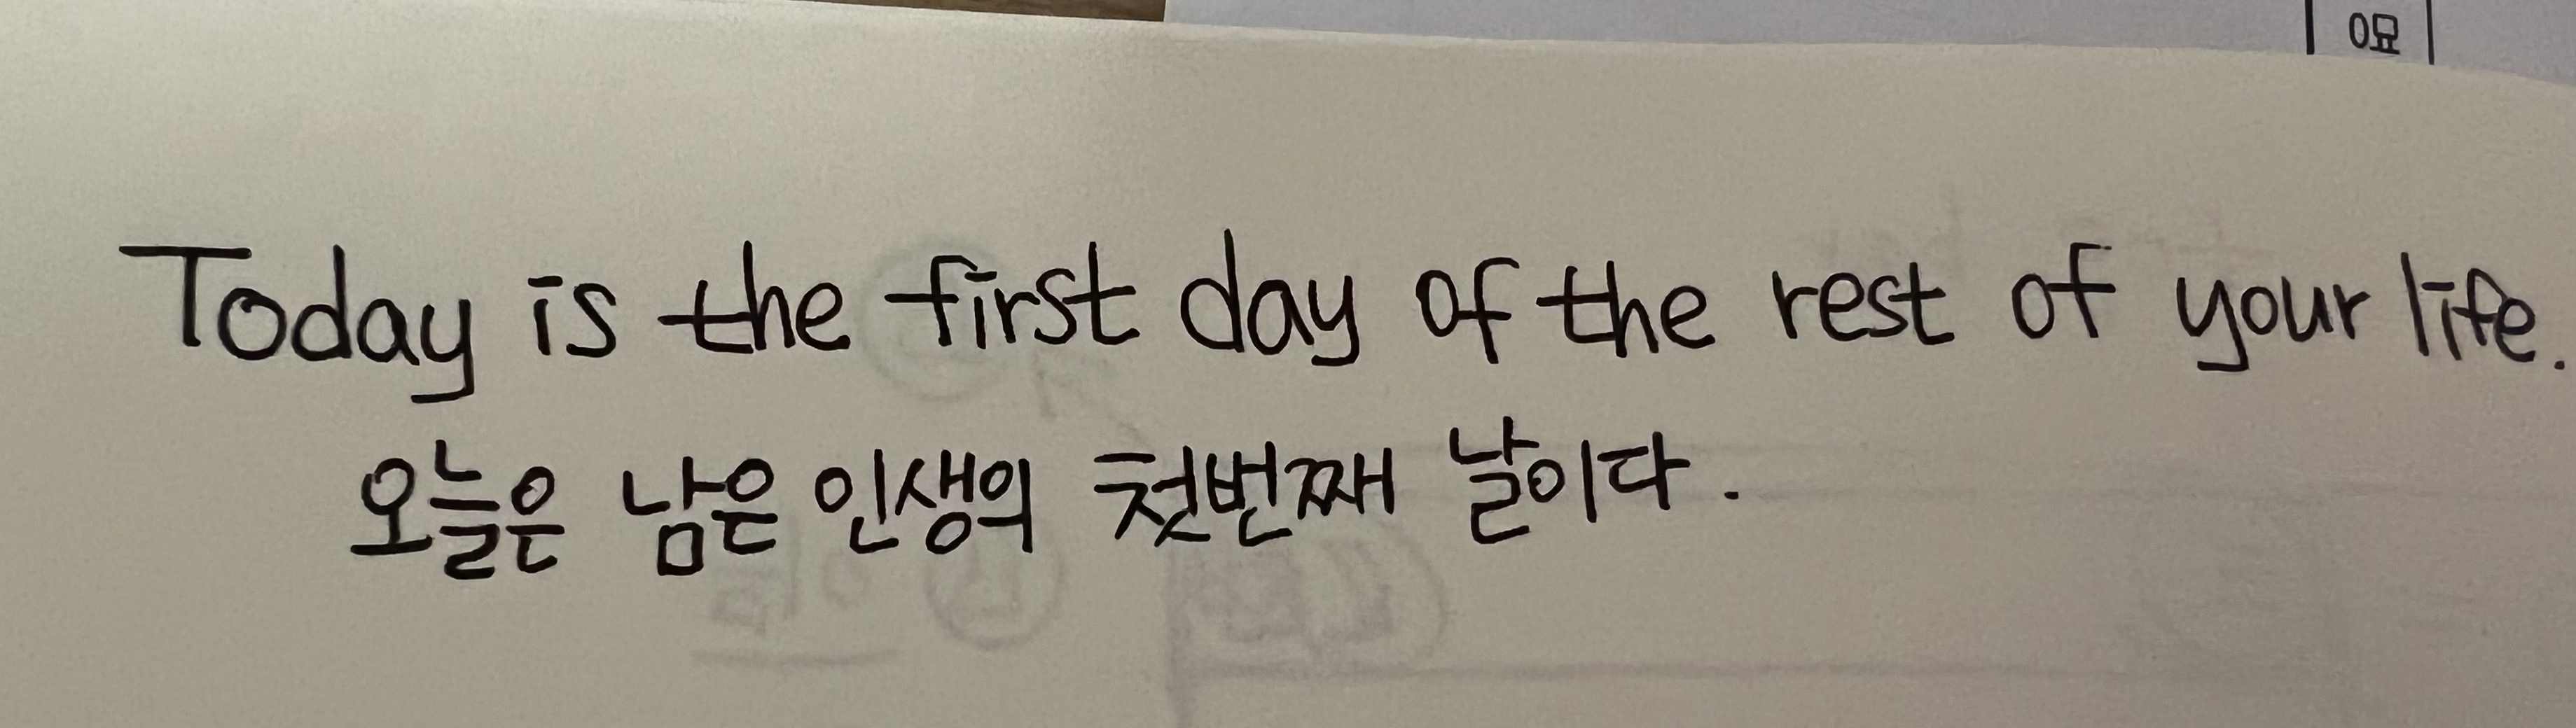 Today is the first day of the rest of your life.
오늘은 남은 인생의 첫번째 날이다.